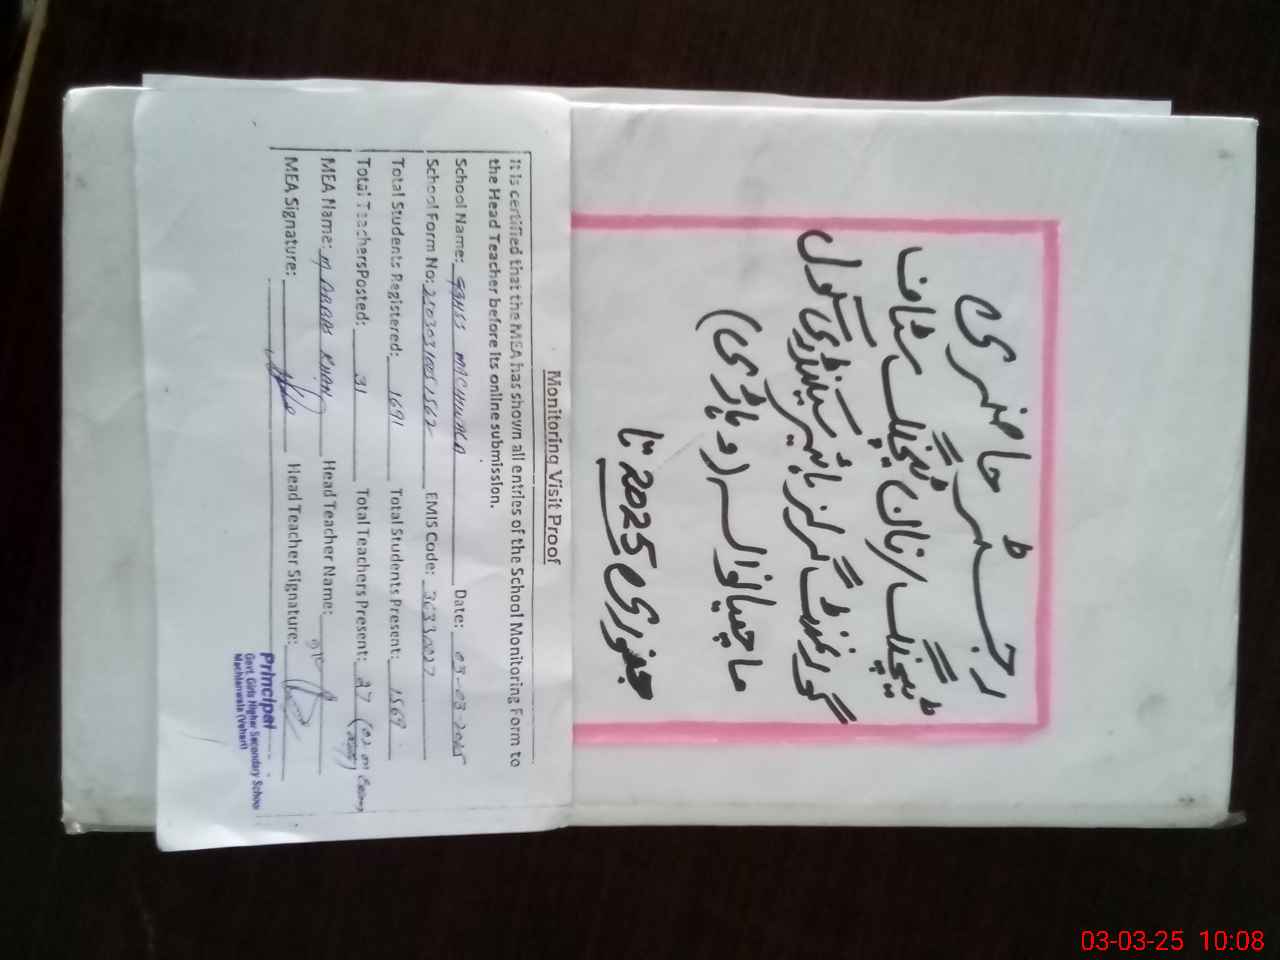 رجسٹر حاضری
ٹیچنگ / نان ٹیچنگ سٹاف
گورنمنٹ گرلز ہائیر سیکنڈری سکول
ماچھیانوالہ (وہاڑی)
جنوری 2025 تا
Monitoring Visit Proof
It is certified that the MEA has shown all entries of the School Monitoring Form to
the Head Teacher before its online submission.
School Name: GGHSS MACHIWALA Date: 03-03-2025
School Form No: EMIS Code:
Total Students Registered: 1691 Total Students Present: 1569
Total Teachers Posted: 31 Total Teachers Present: 27
MEA Name: M ABBAS KHAN Head Teacher Name:
MEA Signature: Head Teacher Signature:
Principal
Govt. Girls Higher Secondary School
Machianwala (Vehari)
03-03-25 10:08